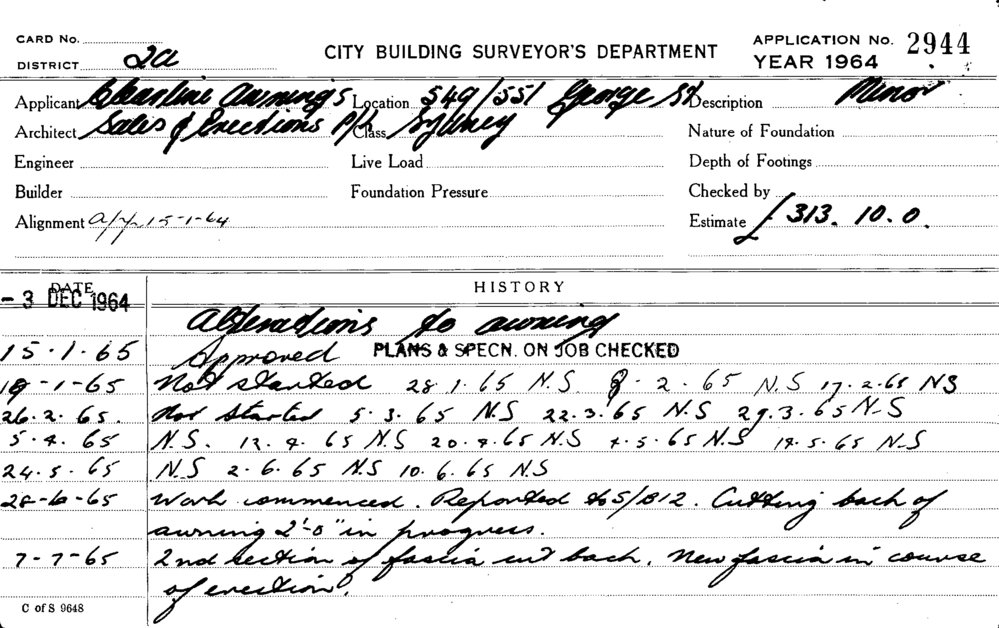 CARD No.
DISTRICT 2a
CITY BUILDING SURVEYOR'S DEPARTMENT
APPLICATION No. 2944
YEAR 1964
Applicant Charline Awnings Location 549/551 George St Description Minor
Architect Sales & Erections P/L Class Sydney Nature of Foundation
Engineer Live Load Depth of Footings
Builder Foundation Pressure Checked by
Alignment 15-1-64 Estimate £313.10.0.
DATE HISTORY
- 3 DEC 1964
Alterations to awning
15.1.65 Approved PLANS & SPECN. ON JOB CHECKED
-1-65 Not started 28.1.65 N.S. 8.2.65 N.S 17.2.65 NS
26.2.65. Not Started 5.3.65 N.S 22.3.65 N.S 29.3.65 N-S
5.4.65 N.S. 12.4.65 N.S 20.4.65 N.S 4.5.65 N.S 14.5.65 N.S
24.5.65 N.S 2.6.65 N.S 10.6.65 N.S
28-6-65 Work commenced. Reported to S/B12. Cutting back of
awning 2'-0" in progress.
7-7-65 2nd section of fascia cut back. New fascia in course
of erection.
C of S 9648